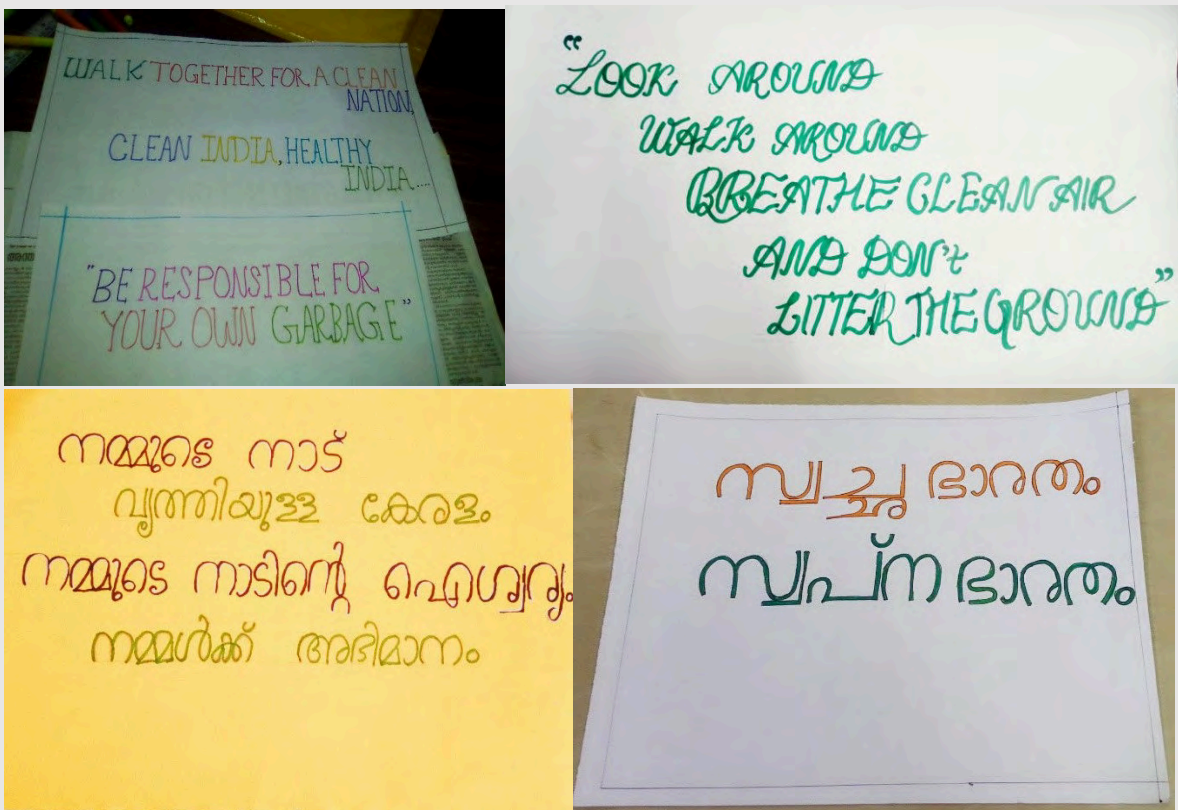 WALK TOGETHER FOR A CLEAN
NATION,
CLEAN INDIA, HEALTHY
INDIA....
"BE RESPONSIBLE FOR
YOUR OWN GARBAGE"
“LOOK AROUND
WALK AROUND
BREATHE CLEAN AIR
AND DON't
LITTER THE GROUND”
നമ്മുടെ നാട്
വൃത്തിയുള്ള കേരളം
നമ്മുടെ നാടിന്റെ ഐശ്വര്യം
നമ്മൾക്ക് അഭിമാനം
സ്വച്ഛ ഭാരതം
സ്വപ്ന ഭാരതം